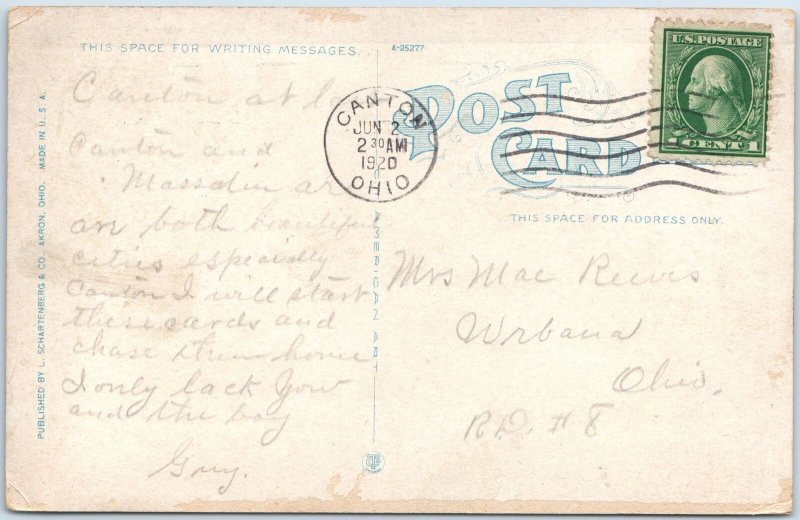 THIS SPACE FOR WRITING MESSAGES.
A-25277
Canton at
Canton and
Massalin ar
an both beautiful
cities especially
Canton I will start
these cards and
chase them home
I only lack your
and the boy
Guy.
PUBLISHED BY L. SCHARTENBERG & CO. AKRON, OHIO. MADE IN U. S. A.
AMERICAN ART
CANTON
JUN 2
2 30 AM
1920
OHIO
POST
CARD
U.S. POSTAGE
1 CENT 1
THIS SPACE FOR ADDRESS ONLY.
Mrs Mae Reeves
Urbana
Ohio.
R.D. # 8